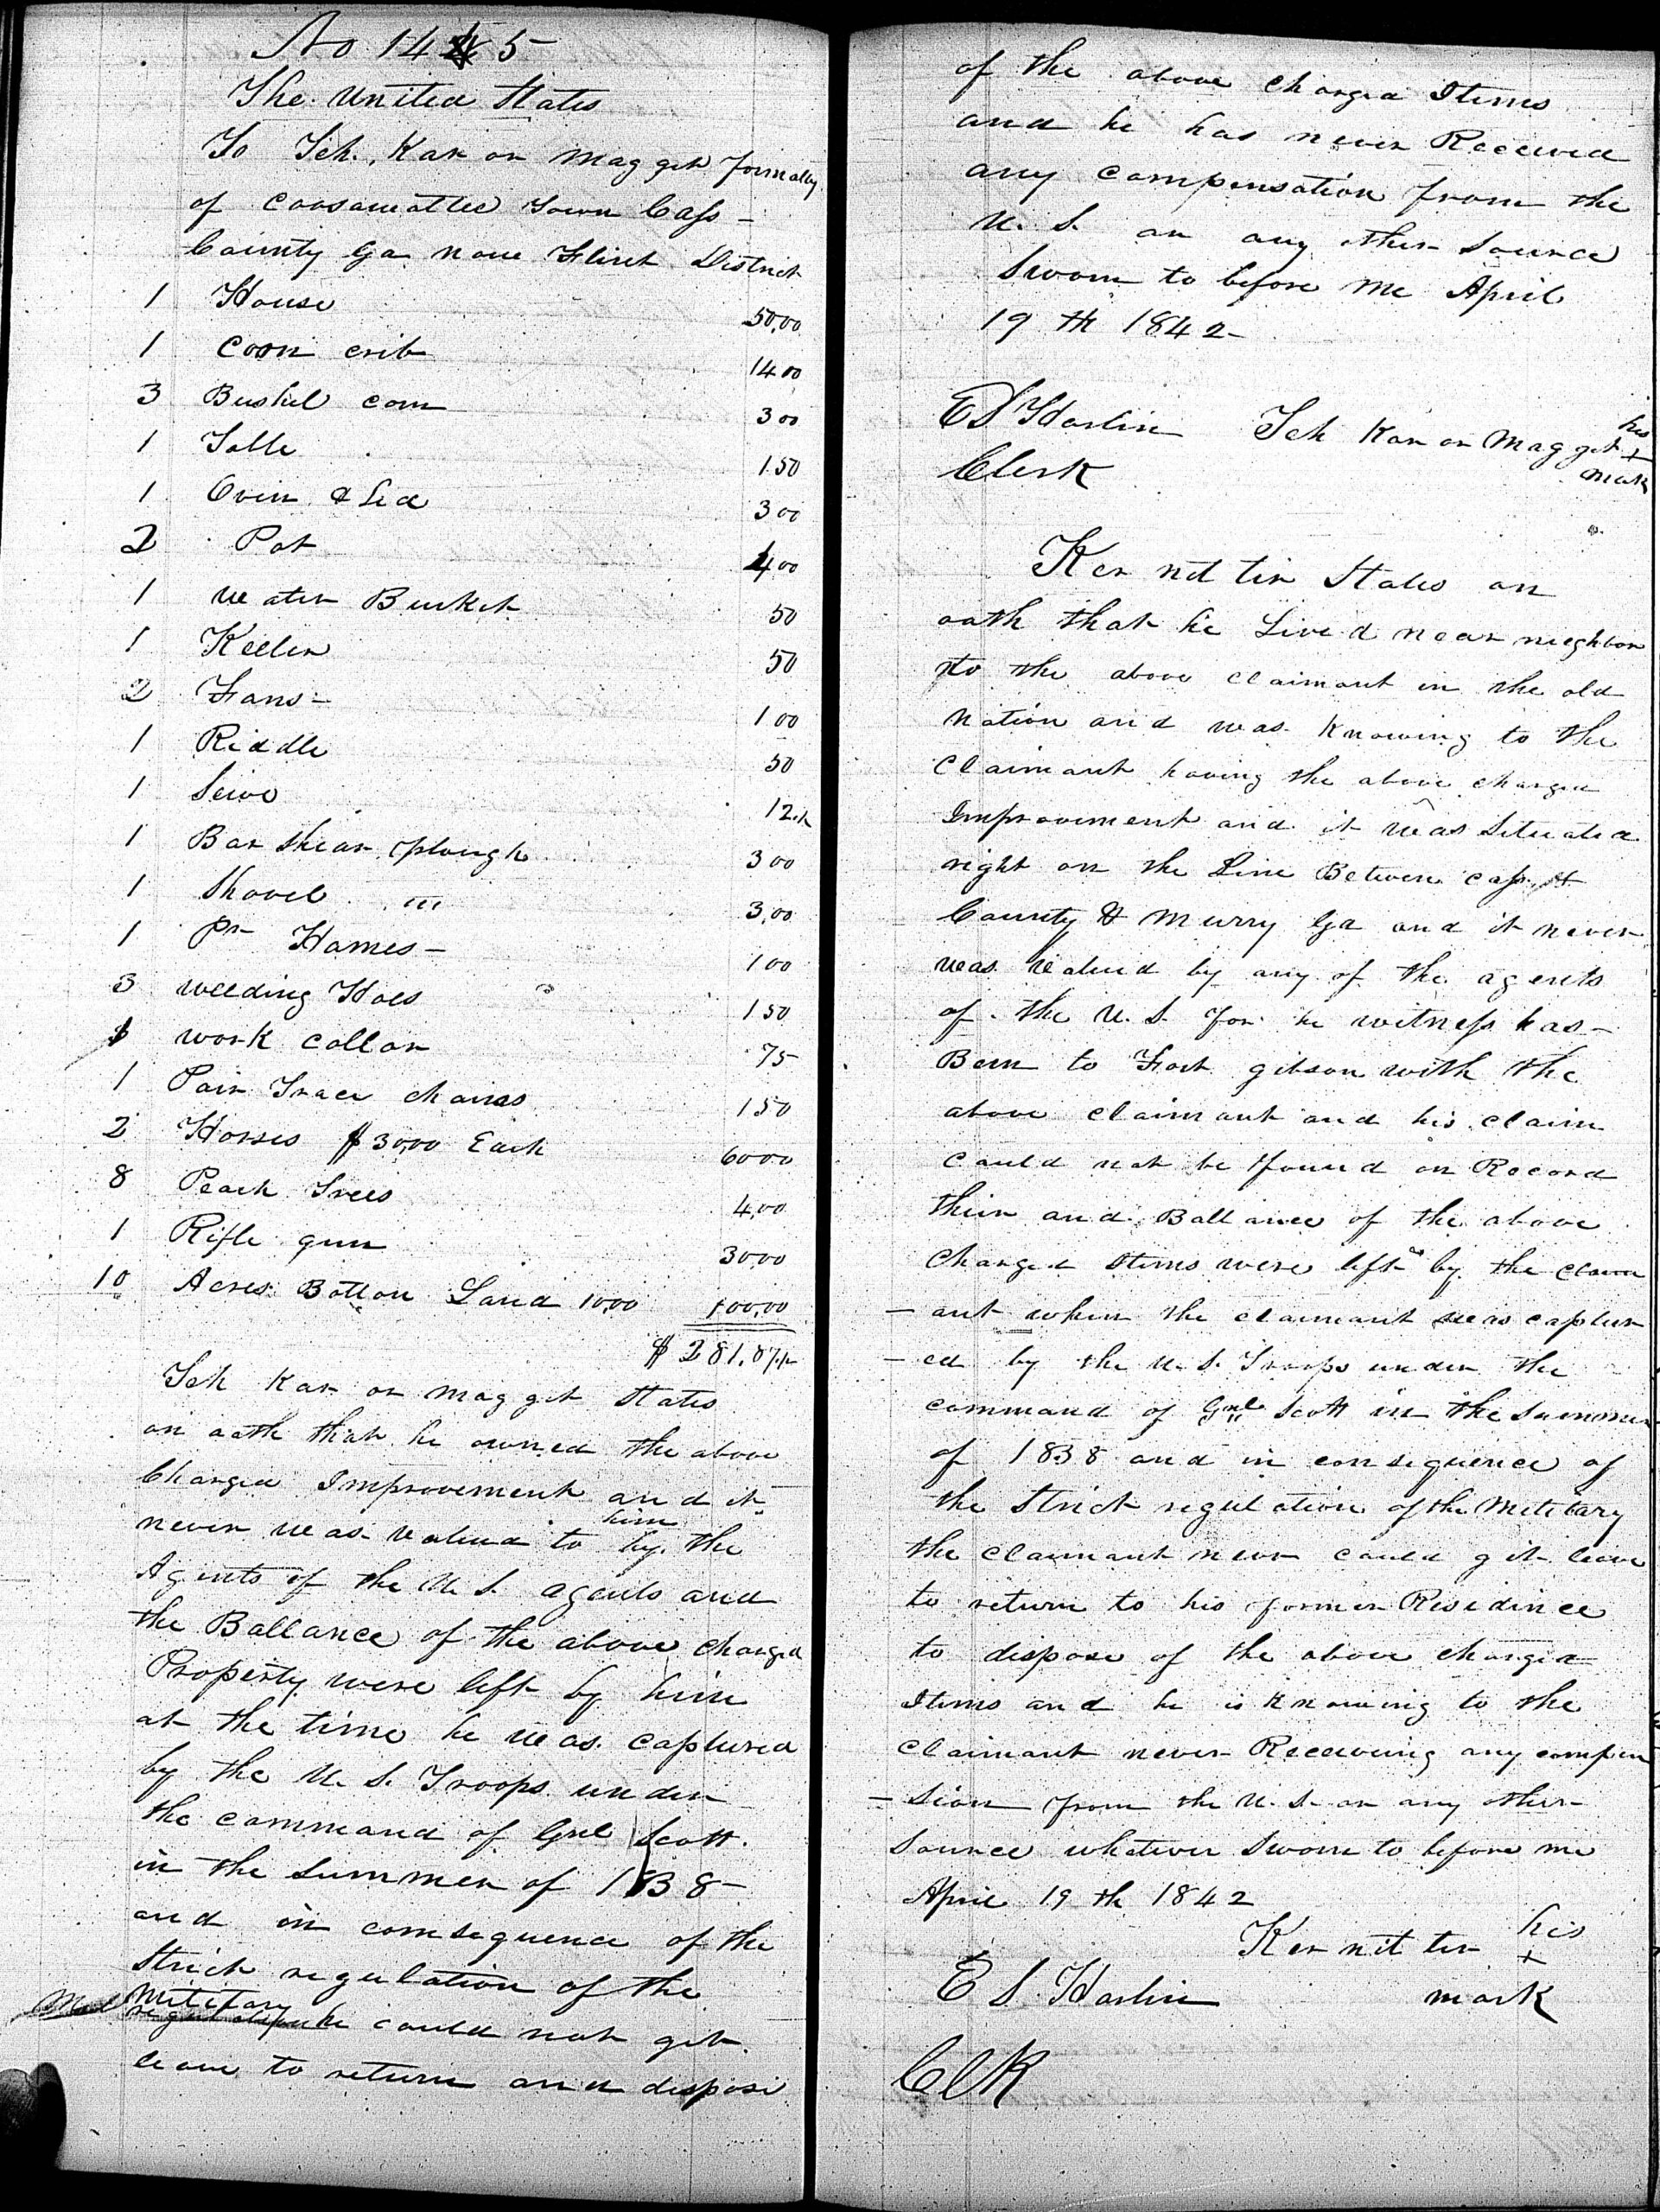 No 145
The United States
To Teh. Kar or Mag got formally
of Coosawattee Town Cass
County Ga now Flint District
1 House 50,00
1 Corn crib 14 00
3 Bushel corn 3 00
1 Table 1 50
1 Oven & Led 3 00
2 Pot 4 00
1 water Bucket 50
1 Keeler 50
2 Fans - 1 00
1 Riddle 50
1 Seive 12½
1 Bar shear plough 3 00
1 Shovel " 3,00
1 Pr Hames - 1 00
3 weeding Hoes 1 50
1 work collar 75
1 Pair Trace chains 1 50
2 Horses $30,00 Each 60 00
8 Peach Trees 4,00
1 Rifle gun 30,00
10 Acres Botton Land 10,00 100,00
$281.87½
Teh Kar or mag got States
on oath that he owned the above
Charged Improvement and it
never was valued to him by the
Agents of the U. S. agents and
the Ballance of the above charged
Property were left by him
at the time he was captured
by the U. S. Troops under
the command of Gnl Scott.
in the summer of 1838
and in consequence of the
Strick regulation of the
Militery he could not get
leave to return and dispose
of the above charged Items
and he has never Received
any compensation from the
U. S. or any other Source
Sworn to before me April
19 th 1842
ES Harlin Teh Kar or Mag got his + mark
Clerk
Ker nit ter States on
oath that he Lived near neighbor
to the above claimant in the old
nation and was knowing to the
Claimant having the above charged
Improvement and it was Situated
right on the Line Between Cass
County & Murry Ga and it never
was valued by any of the agents
of the U. S. for he witness has
Been to Fort gibson with the
above claimant and his claim
could not be found on Record
their and Ballance of the above
charged Items were left by the claim
- ant when the claimant was captur
- ed by the U. S. Troops under the
command of Gnl Scott in the Summer
of 1838 and in consequence of
the Strick regulation of the Militery
the claimant never could git leave
to return to his former Residince
to dispose of the above charged
Items and he is knowing to the
claimant never Receiving any compen
- sion from the U. S. or any other
Source whatever Sworn to before me
April 19 th 1842
Ker nit ter his + mark
E S Harlin
ClK